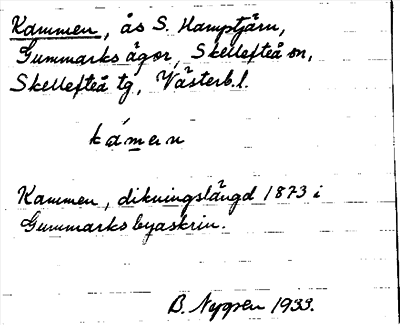 Kammen, ås S. Hamptjärn,
Gummarks ägor, Skellefteå sn,
Skellefteå tg, Västerb.l.
kámen
Kammen, dikningslängd 1873 i
Gummarks byaskrin.
B. Nygren 1933.